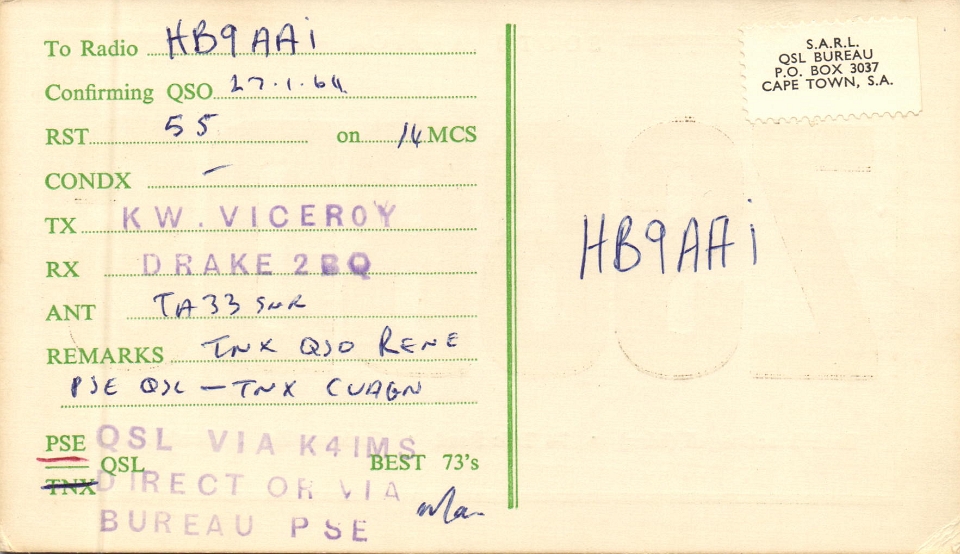 To Radio HB9AAi
Confirming QSO 27.1.64
RST 55 on 14 MCS
CONDX –
TX K.W. VICEROY
RX DRAKE 2BQ
ANT TA33 SNR
REMARKS TNX QSO RENE
PSE QSL — TNX CUAGN
PSE QSL VIA K4IMS
QSL BEST 73's
TNX DIRECT OR VIA
BUREAU PSE
S.A.R.L.
QSL BUREAU
P.O. BOX 3037
CAPE TOWN, S.A.
HB9AAi